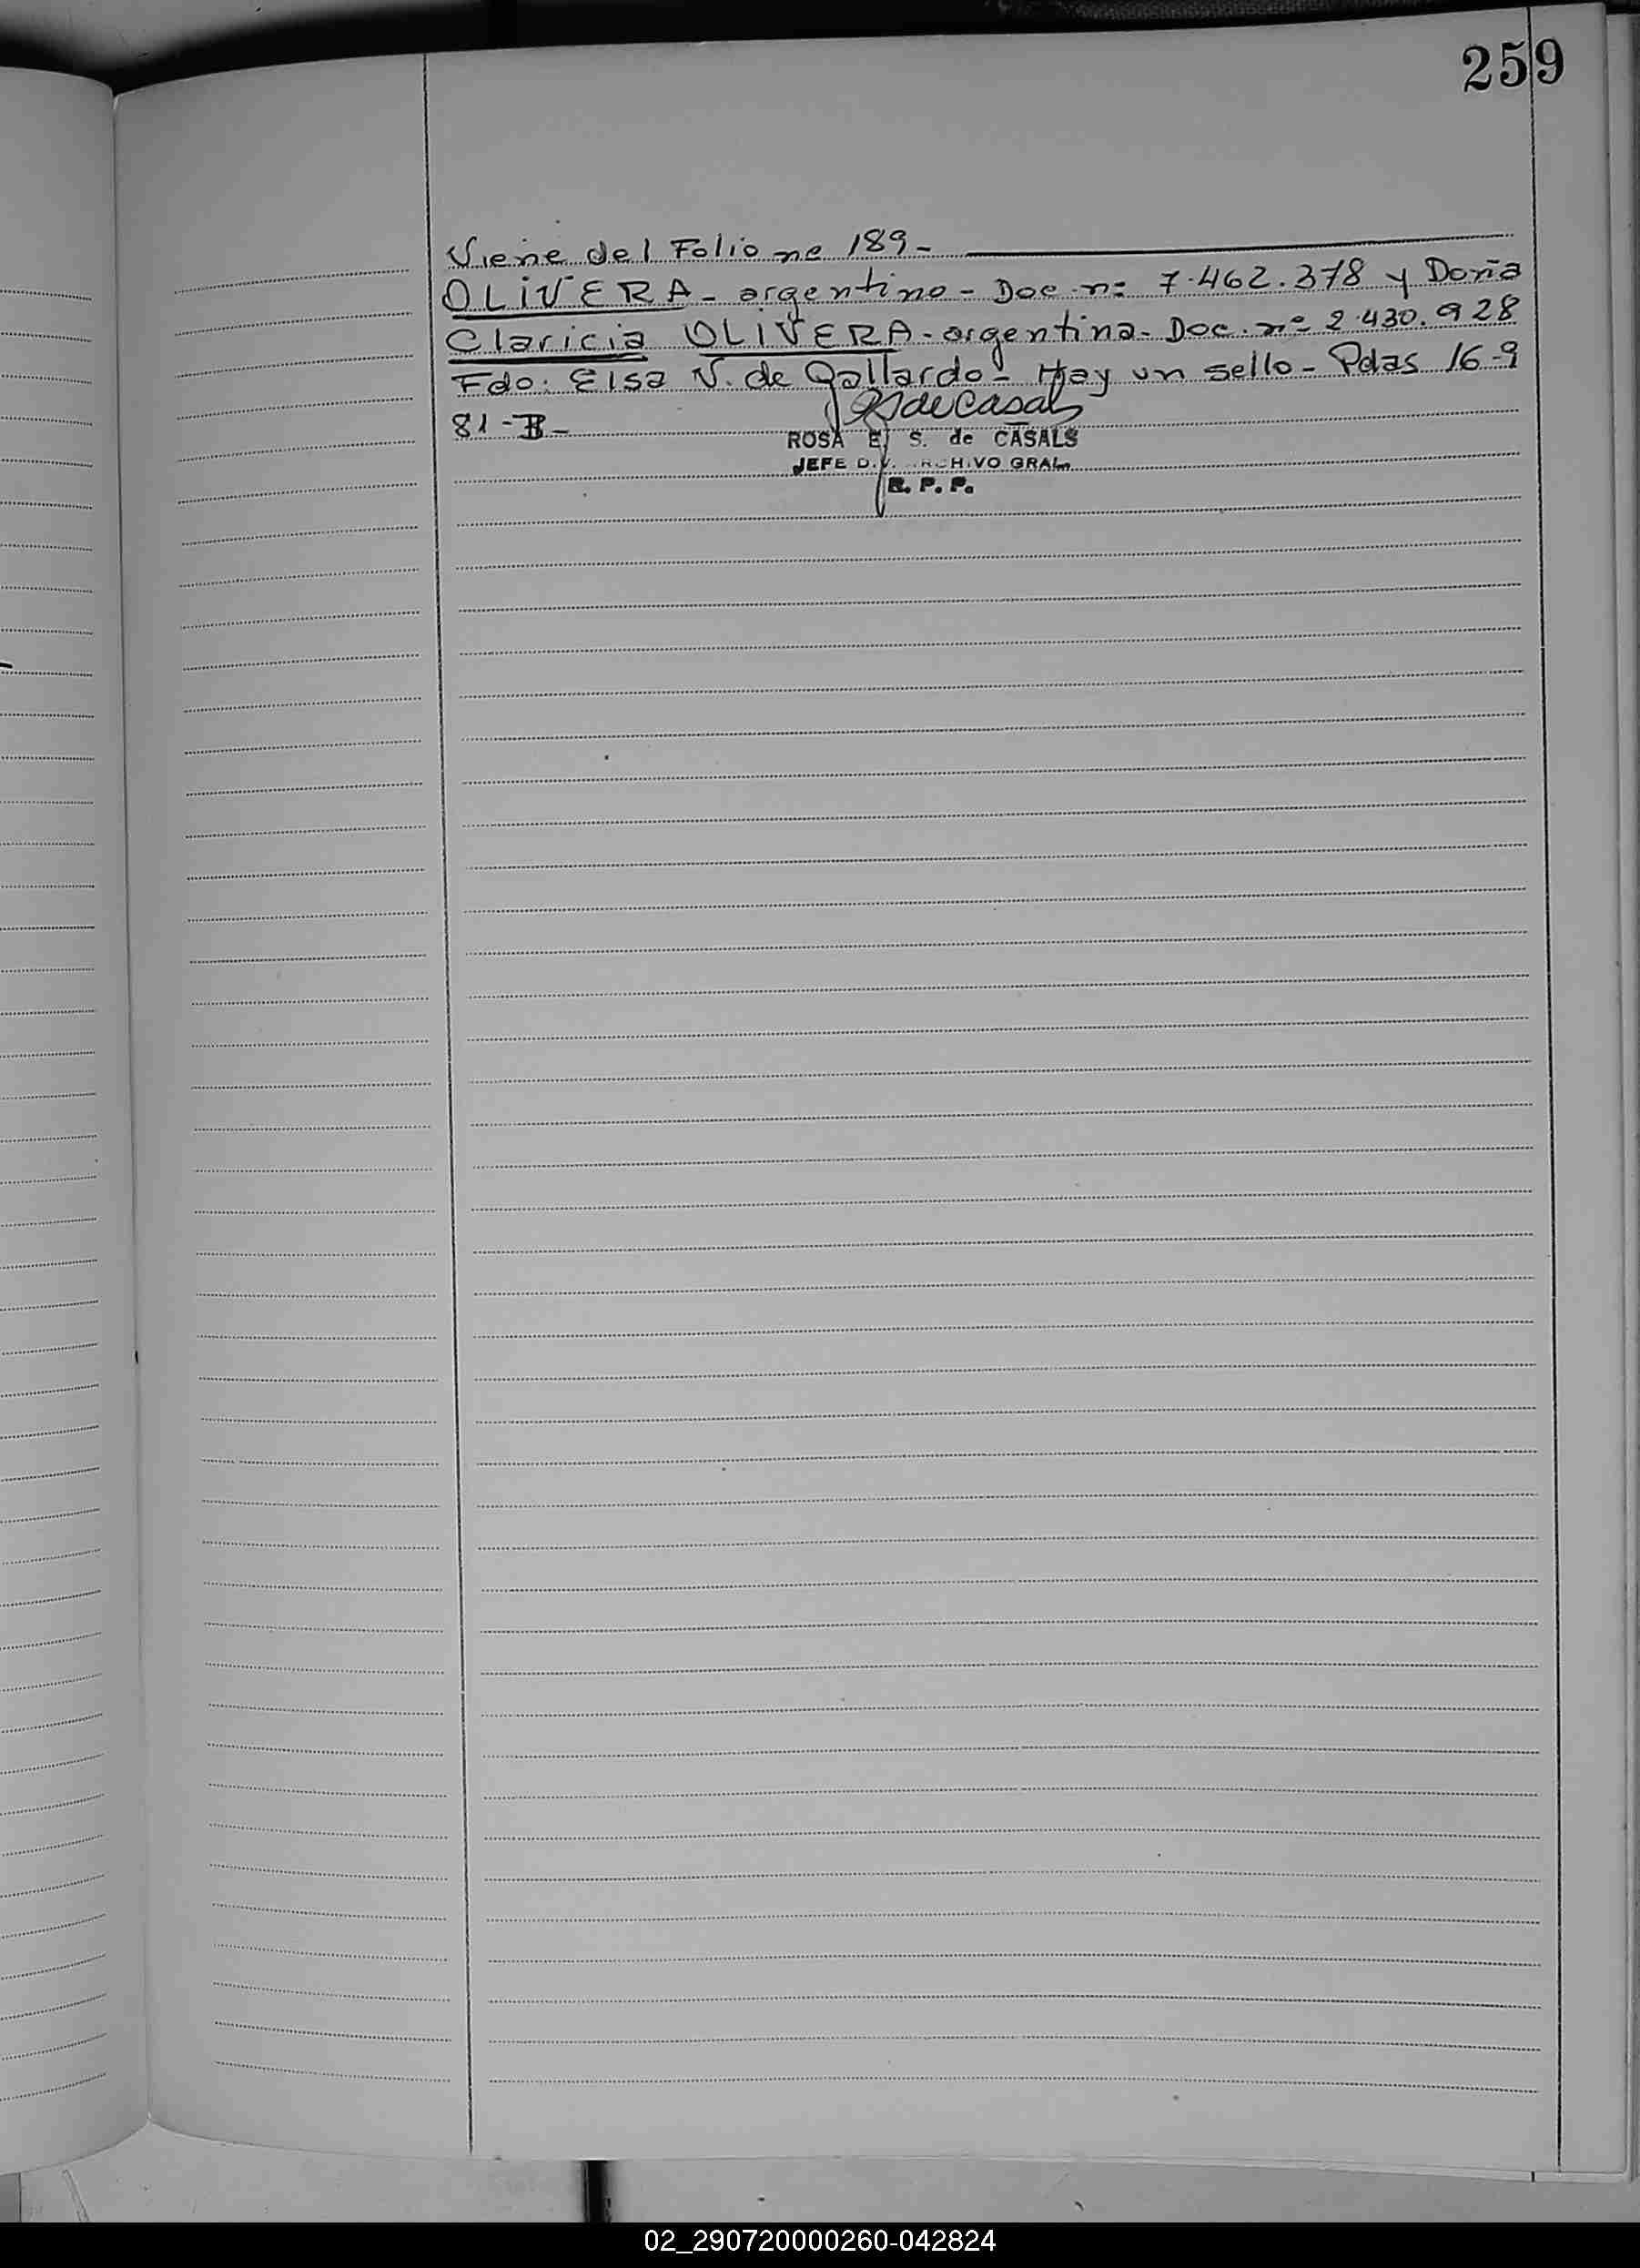 259
Viene del Folio nº 189-
OLIVERA - argentino - Doc. nº 7.462.378 y Doña
Claricia OLIVERA - argentina - Doc. nº 2.430.928
Fdo: Elsa N. de Gallardo - Hay un sello - Pdas 16-9
81 - B -
ROSA E. S. de CASALS
JEFE DIV. ARCHIVO GRAL.
R. P. P.
02_290720000260-042824